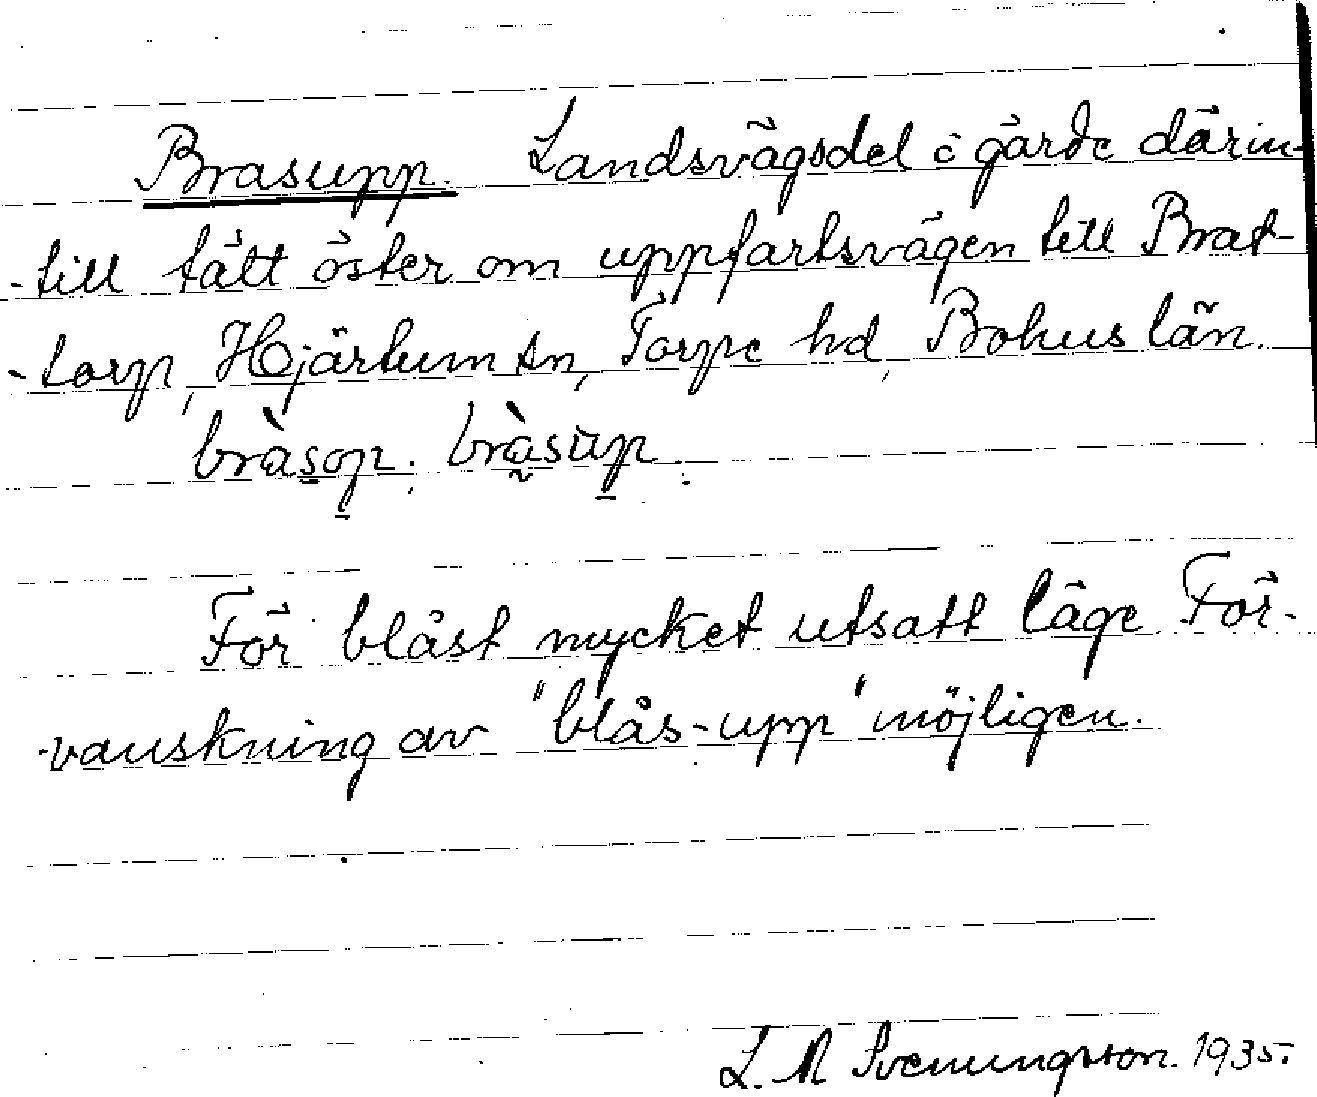 Brasupp. Landsvägsdel i gärde därin-
-till tätt öster om uppfartsvägen till Brat-
-torp, Hjärtum sn, Torpe hd, Bohuslän.
bràsop. bràsùp.
För blåst mycket utsatt läge För-
-vanskning av "blås-upp" möjligen.
L. M Svenungsson. 1935.